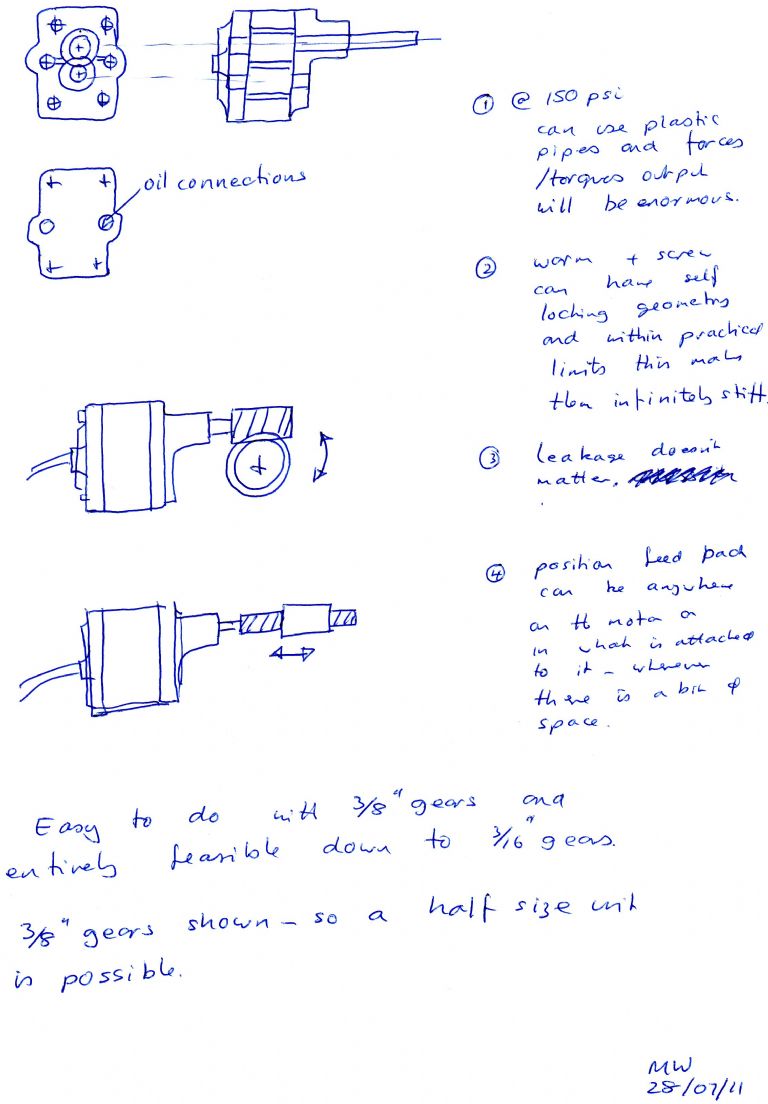 oil connections
① @ 150 psi
can use plastic
pipes and forces
/torques output
will be enormous.
② worm + screw
can have self
locking geometry
and within practical
limits this makes
them infinitely stiff.
③ leakage doesn't
matter.
④ position feed back
can be anywhere
on the motor or
in what is attached
to it – wherever
there is a bit of
space.
Easy to do with 3/8" gears and
entirely feasible down to 3/16" gears.
3/8" gears shown – so a half size unit
is possible.
MW
28/07/11